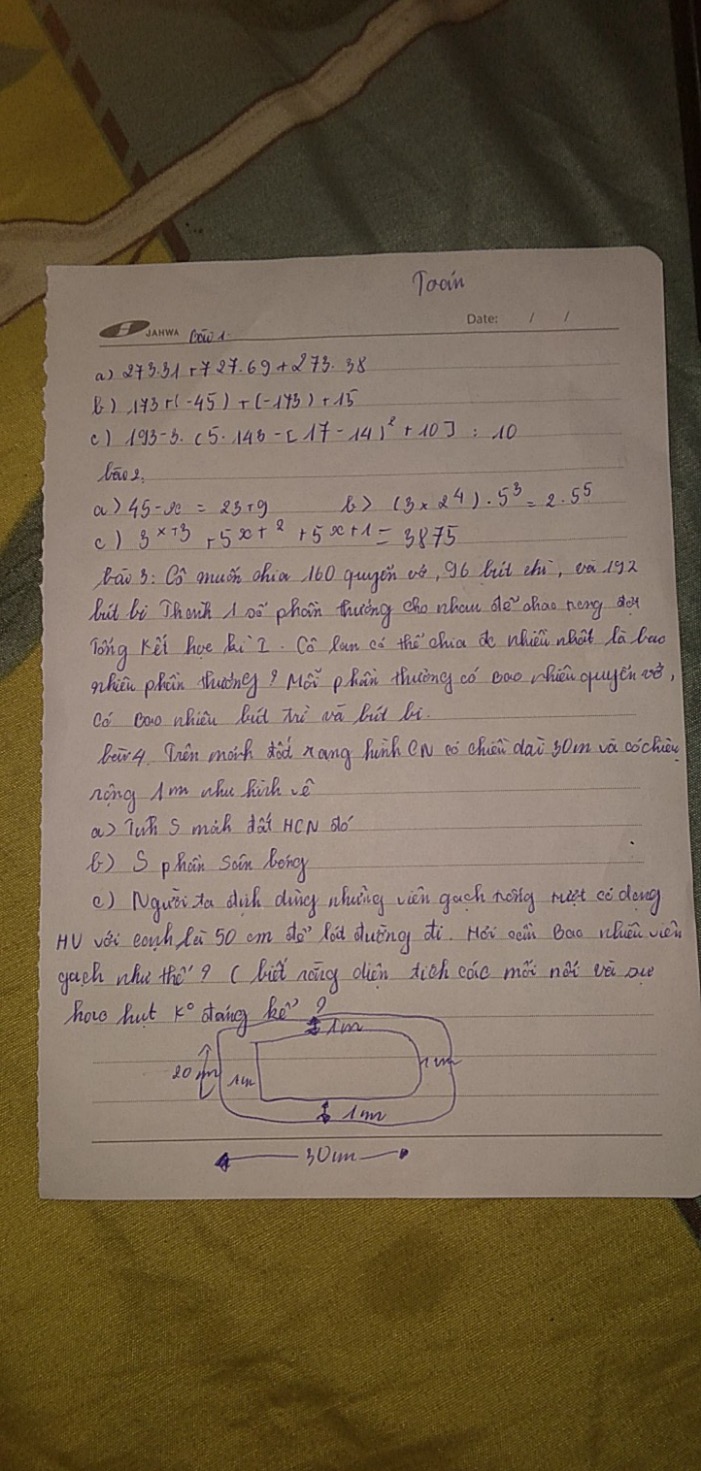 Toán
JAHWA Bài 1.
Date: / /
a) 273.31 + 727.69 + 273.38
b) 173 + (-45) + (-173) + 15
c) 193-3. (5. 143 - [17 - 14)² + 10] : 10
bài 2.
a) 45 - x = 23+9 b) (3x 2⁴) . 5³ = 2.5⁵
c) 3ˣ⁺³ + 5x+² + 5x+1 = 3875
bài 3: Cô muốn chia 160 quyển vở, 96 bút chì, và 192
bút bi Thành 1 số phần thưởng cho nhau để
Tổng Kết học kì I. Cô có thể chia đc nhiều nhất là bao
nhiêu phần thưởng? Mỗi phần thưởng có bao nhiêu quyển vở,
Có bao nhiêu bút và bút bi.
bài 4. Trên mảnh đất hình CN có chiều dài 30m và có chiều
rộng 1m như hình vẽ
a) Tính S mảnh đất HCN đó
b) S phần bông
c) Người ta dùng những viên gạch có dạng
HV với cạnh là 50 cm để lát đường đi. Hỏi cần Bao nhiêu viên
gạch như thế? (biết rằng diện tích các mối nối và sự
hao hụt K° đáng kể?
1m
20m 1m 1m
1m
30m